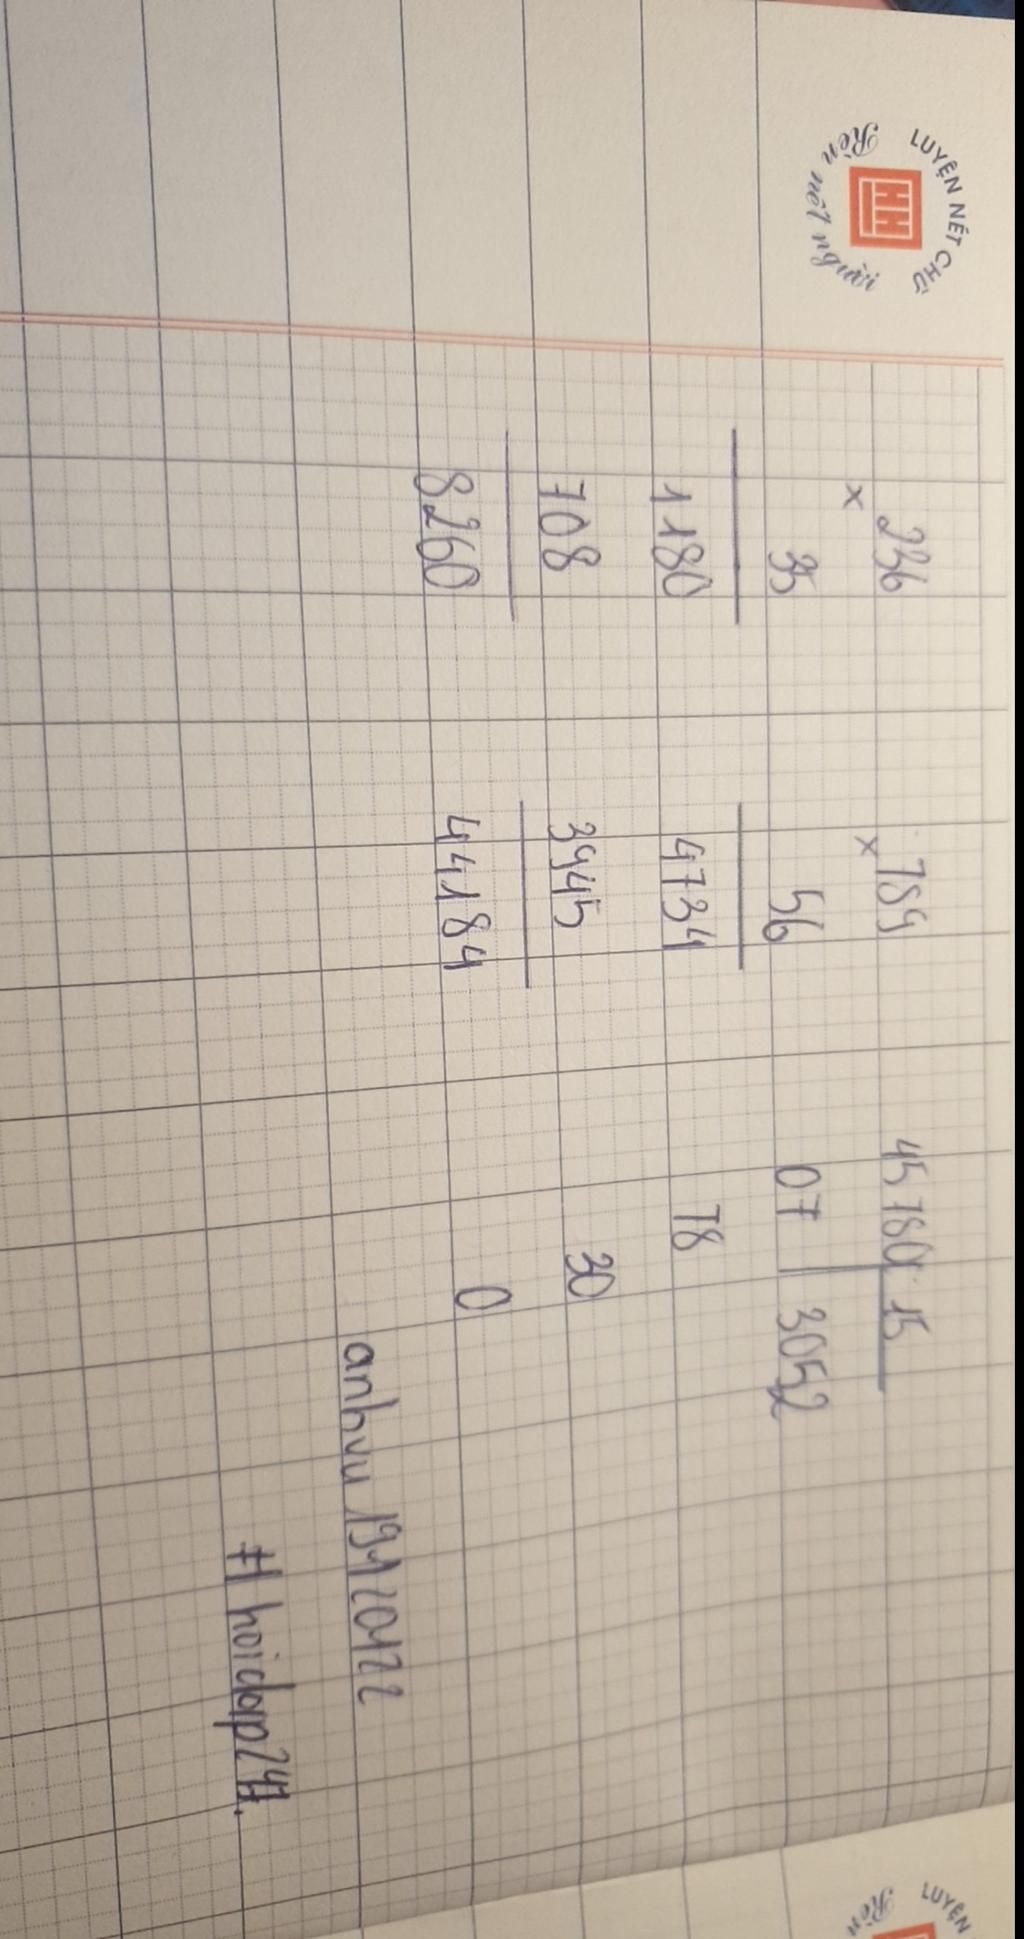 LUYỆN NÉT CHỮ
Rèn nết người
236
x
35
1180
708
8260
789
x
56
4734
3945
44184
45780 15
07 3052
78
30
0
anhvu19120122
#hoidap247.
LUYỆN
Rèn